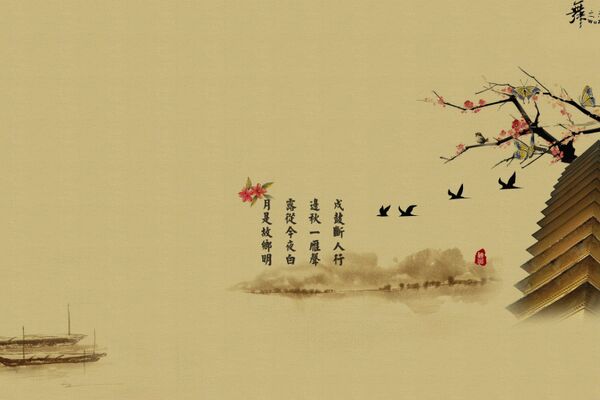 戍鼓斷人行
邊秋一雁聲
露從今夜白
月是故鄉明